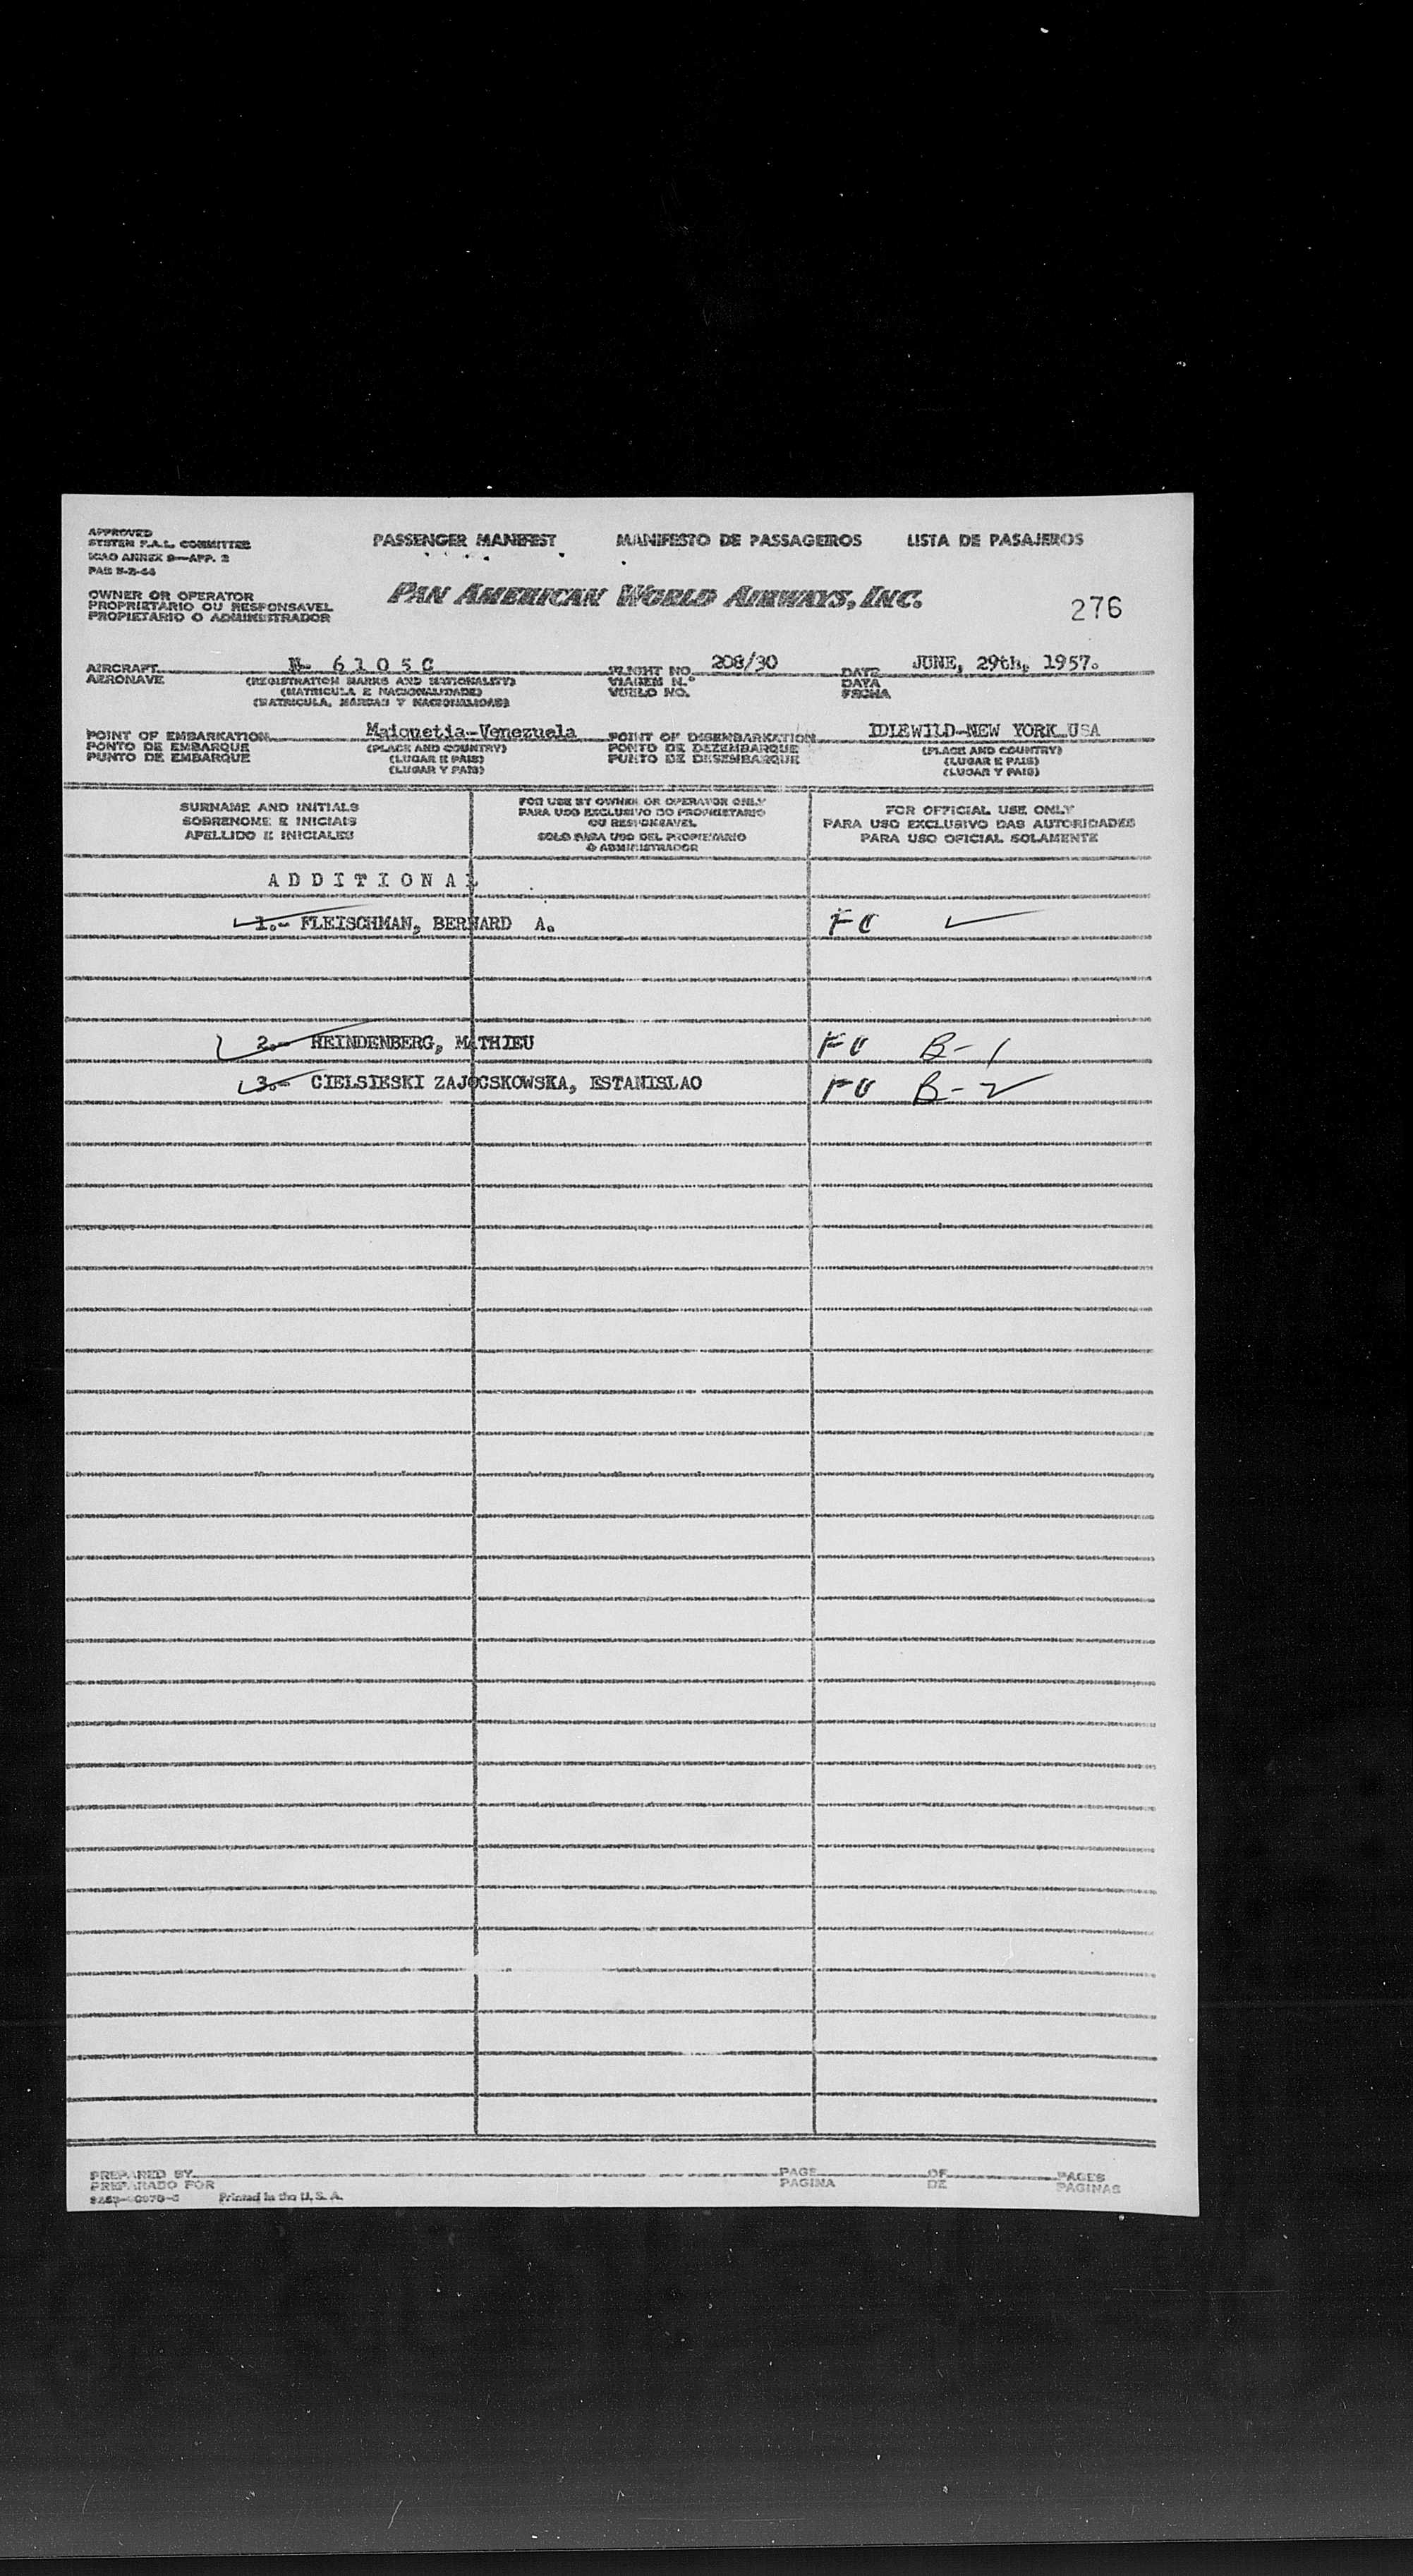 APPROVED
SYSTEM F.A.L. COMMITTEE
ICAO ANNEX 9—APP. 2
PASSENGER MANIFEST MANIFESTO DE PASSAGEIROS LISTA DE PASAJEROS
OWNER OR OPERATOR
PROPRIETARIO OU RESPONSAVEL
PROPIETARIO O ADMINISTRADOR
PAN AMERICAN WORLD AIRWAYS, INC.
276
AIRCRAFT N- 6 1 0 5 C FLIGHT NO. 208/30 DATE JUNE, 29th, 1957.
AERONAVE (REGISTRATION MARKS AND NATIONALITY) VIAGEM N.° DATA
(MATRICULA E NACIONALIDADE) VUELO NO. FECHA
(MATRICULA, MARCAS Y NACIONALIDAD)
POINT OF EMBARKATION Maiquetia-Venezuela POINT OF DISEMBARKATION IDLEWILD-NEW YORK USA
PONTO DE EMBARQUE (PLACE AND COUNTRY) PONTO DE DEZEMBARQUE (PLACE AND COUNTRY)
PUNTO DE EMBARQUE (LUGAR E PAIS) PUNTO DE DESEMBARQUE (LUGAR E PAIS)
(LUGAR Y PAIS) (LUGAR Y PAIS)
SURNAME AND INITIALS
SOBRENOME E INICIAIS
APELLIDO E INICIALES
FOR USE BY OWNER OR OPERATOR ONLY
PARA USO EXCLUSIVO DO PROPRIETARIO
OU RESPONSAVEL
SOLO PARA USO DEL PROPIETARIO
O ADMINISTRADOR
FOR OFFICIAL USE ONLY
PARA USO EXCLUSIVO DAS AUTORIDADES
PARA USO OFICIAL SOLAMENTE
A D D I T I O N A L
1.- FLEISCHMAN, BERNARD A. FC
2.- HEINDENBERG, MATHIEU FC B-1
3.- CIELSIESKI ZAJOCSKOWSKA, ESTANISLAO FC B-2
PREPARED BY PAGE OF PAGES
PREPARADO POR PAGINA DE PAGINAS
Printed in the U.S.A.